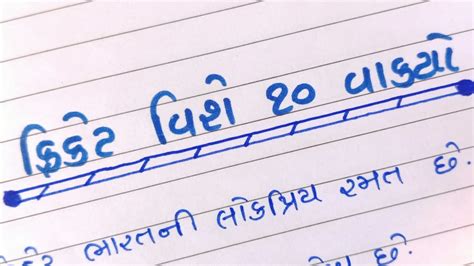 ક્રિકેટ વિશે ૧૦ વાક્યો
ભારતની લોકપ્રિય રમત છે.
છે.